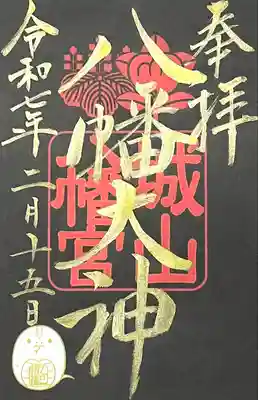 奉拝
八幡大神
城山
八幡宮
令和七年二月十五日